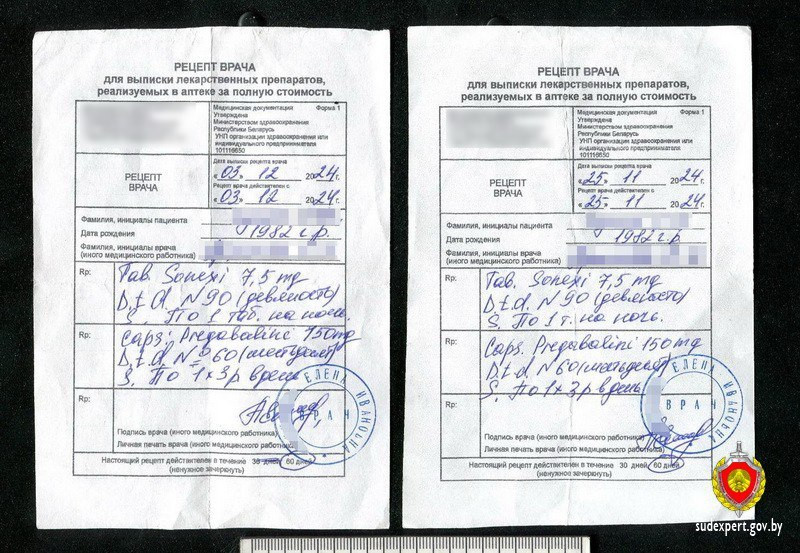 РЕЦЕПТ ВРАЧА
для выписки лекарственных препаратов,
реализуемых в аптеке за полную стоимость
Медицинская документация Форма 1
Утверждена
Министерством здравоохранения
Республики Беларусь
УНП организации здравоохранения или
индивидуального предпринимателя
101116650
РЕЦЕПТ
ВРАЧА
Дата выписки рецепта врача
«03» 12 2024г.
Рецепт врача действителен с
«03» 12 2024г.
Фамилия, инициалы пациента
Дата рождения 1982 г.р.
Фамилия, инициалы врача
(иного медицинского работника)
Rp: Tab. Sonexi 7,5 mg
D.t.d. N 90 (девяносто)
S. По 1 таб. на ночь.
Rp: Caps. Pregabalini 150mg
D.t.d. N 60 (шестьдесят)
S. По 1 х 3 р в день
Rp:
ЕЛЕНА ИВАНОВНА
ВРАЧ
Подпись врача (иного медицинского работника)
Личная печать врача (иного медицинского работника)
Настоящий рецепт действителен в течение 30 дней 60 дней
(ненужное зачеркнуть)
РЕЦЕПТ ВРАЧА
для выписки лекарственных препаратов,
реализуемых в аптеке за полную стоимость
Медицинская документация Форма 1
Утверждена
Министерством здравоохранения
Республики Беларусь
УНП организации здравоохранения или
индивидуального предпринимателя
101116650
РЕЦЕПТ
ВРАЧА
Дата выписки рецепта врача
«25» 11 2024г.
Рецепт врача действителен с
«25» 11 2024г.
Фамилия, инициалы пациента
Дата рождения 1982 г.р.
Фамилия, инициалы врача
(иного медицинского работника)
Rp: Tab. Sonexi 7,5 mg
D.t.d. N 90 (девяносто)
S. По 1 т. на ночь.
Rp: Caps. Pregabalini 150 mg
D.t.d. N 60 (шестьдесят)
S. По 1 х 3 р в день
Rp:
ЕЛЕНА ИВАНОВНА
ВРАЧ
Подпись врача (иного медицинского работника)
Личная печать врача (иного медицинского работника)
Настоящий рецепт действителен в течение 30 дней 60 дней
(ненужное зачеркнуть)
sudexpert.gov.by